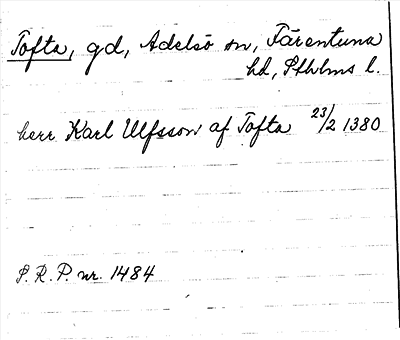 Tofta, gd, Adelsö sn, Färentuna
hd, Sthlms l.
herr Karl Ulfsson af Tofta 23/2 1380
S. R. P. nr. 1484